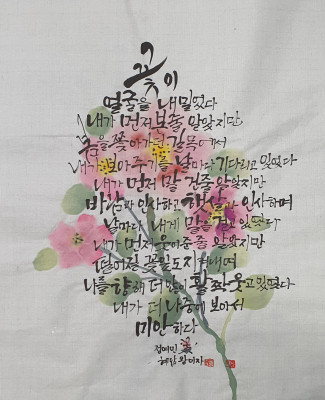 꽃이
얼굴을 내밀었다
내가 먼저 본 줄 알았지만
봄을 쫓아가던 길목에서
내가 보아주기를 날마다 기다리고 있었다
내가 먼저 말 건 줄 알았지만
바람과 인사하고 햇살과 인사하며
날마다 내게 말을 걸고 있었다
내가 먼저 웃어준 줄 알았지만
떨어진 꽃잎도 지켜내며
나를 향해 더 많이 활짝 웃고 있었다
내가 더 나중에 보아서
미안하다